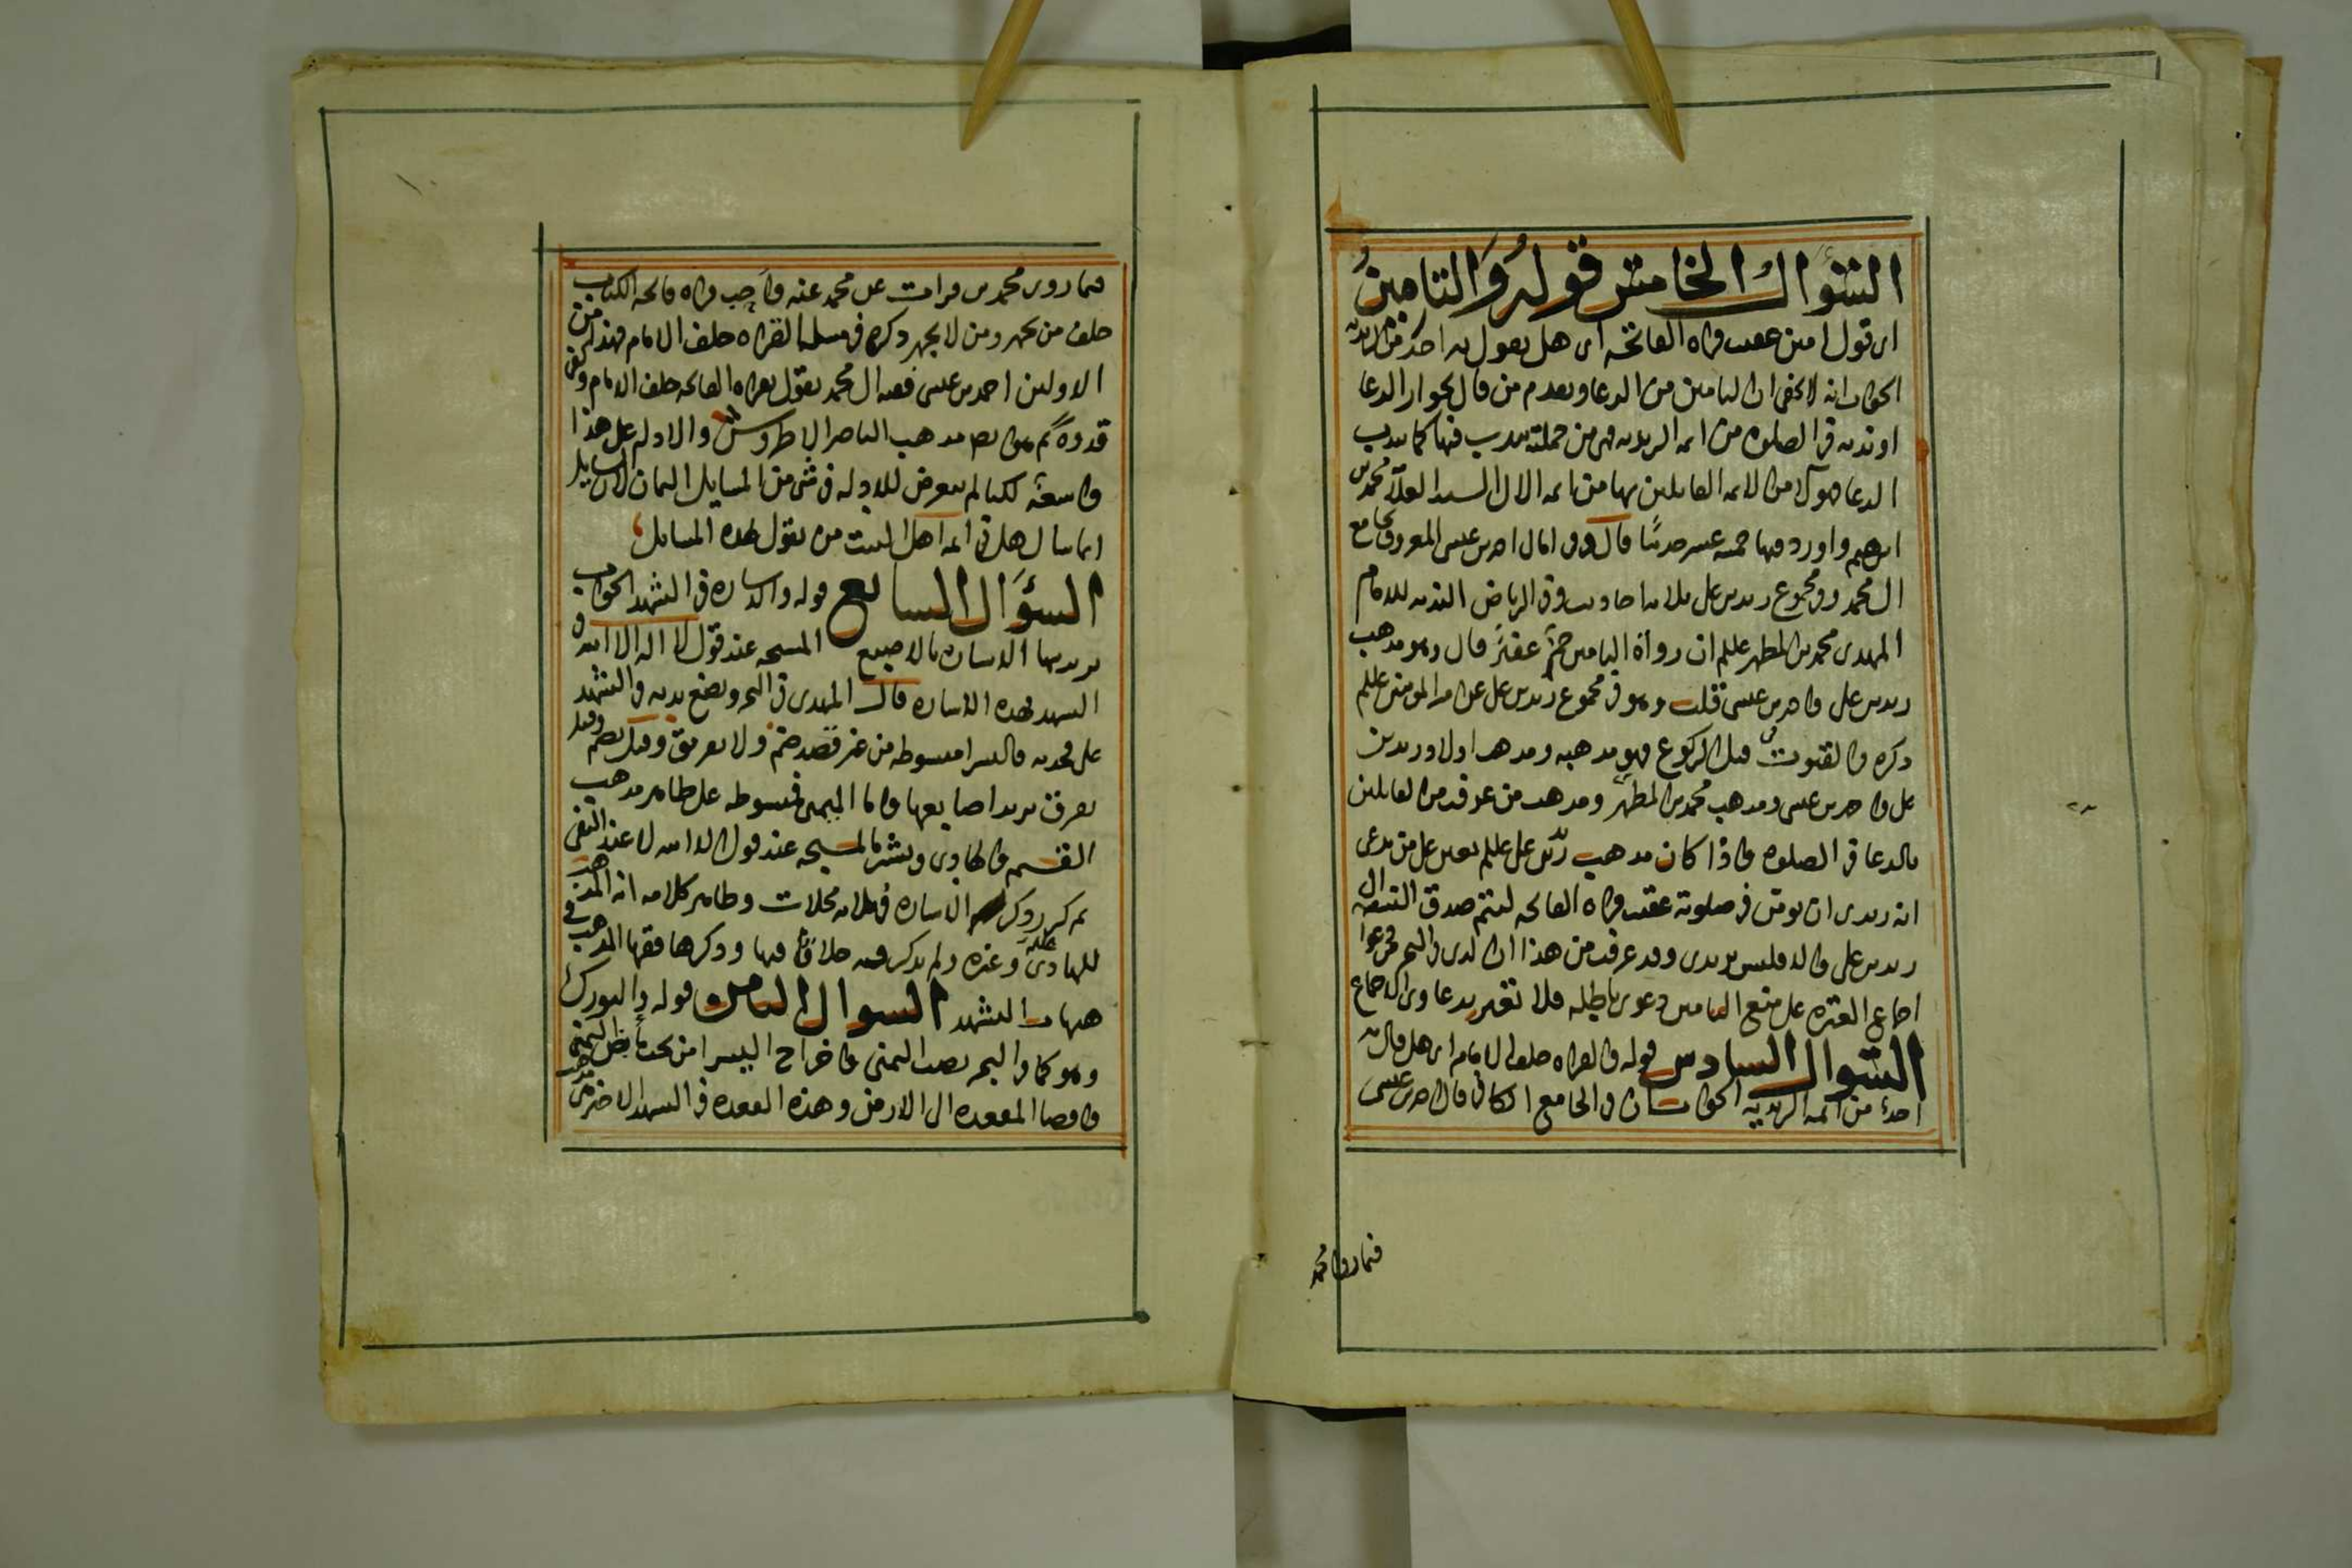 السؤال الخامس قوله والتامين
اى قول امين عقب قراه الفاتحه اى هل يقول به احد من الزيديه
الجواب انه لا يخفى ان التامين من الدعا وتقدم من قال بجواز الدعا
او ندبه فى الصلوه من ائمه الزيديه فهى من جملته يندب فيها كما يندب
الدعا هولا من الائمه القايلين بها من ائمه الال السيد العلّامه محمد بن
ابرهيم واورد فيها خمسه عشر حديثا قال وفى امالى احمد بن عيسى المعروف بجامع
ال محمد وفى مجموع زيد بن على ثلاثه احاديث وفى الرياض النديه للامام
المهدى محمد بن المطهر عليلم ان رواة التامين جم غفير قال وهو مذهب
زيد بن على واحمد بن عيسى قلت وهو فى مجموع زيد بن على عن امير المومنين عليلم
ذكره فى القنوت قبل الركوع فهو مذهبه ومذهب اولاد زيد بن
على واحمد بن عيسى ومذهب محمد بن المطهر ومذهب من عرفت من القايلين
بالدعا فى الصلوه واذا كان مذهب زيد بن على عليلم تعين على من يدعى
انه زيدى ان يومن فى صلوته عقب قراه الفاتحه ليتم صدق انتسابه الى
زيد بن على والا فليس بزيدى وقد عرفت من هذا ان الذى فى البحر من دعوا
اجماع العتره على منع التامين دعوى باطله فلا تغتر بدعاوى الاجماع
السؤال السادس قوله والقراه خلف الامام اى هل قال به
احد من ائمه الزيديه الجواب ان فى الجامع الكافى قال احمد بن عيسى
فيما روى محمد
فيما روى محمد بن فرات عن محمد عنه واجب قراه فاتحه الكتاب
خلف من يجهر ومن لا يجهر ذكره فى مسله القراه خلف الامام فهذا من
الاولين احمد بن عيسى فقيه ال محمد يقول بقراه الفاتحه خلف الامام وكفى
قدوة ثم هو ايضا مذهب الناصر الاطروش والادله على هذا
واسعة لكنا لم نتعرض للادله فى شى من المسايل الثمان لان السايل
انما سال هل فى ائمه اهل البيت من يقول بهذه المسايل
السؤال السابع قوله والاشاره فى التشهد الجواب
يريد بها الاشاره بالاصبع المسبحه عند قول لا اله الا الله فى
التشهد بهذه الاشاره قال المهدى فى البحر ويضع يديه فى التشهد
على فخذيه فاليسرا مبسوطه من غير قصد ضم ولا تفريق وقيل يضم وقيل
يفرق يريد اصابعها واما اليمنى فمبسوطه على ظاهر مذهب
القسم والهادى ويشير بالمسبحه عند قول الا الله لا عند النفى
ثم كرر ذكر الاشاره فى ثلاثه محلات وظاهر كلامه انه المذهب
للهادى وغيره ولم يذكر فيه خلافا فيها وذكرها فقها المذهب فى
هيات التشهد السوال الثامن قوله والتورك
وهو كما فى البحر نصب اليمنى واخراج اليسرا من تحت فخذ اليمنى
وافضا المقعده الى الارض وهذه القعده فى التشهد الاخير مذهب